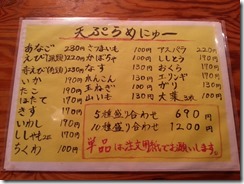 天ぷらめにゅー
あなご 230円
えび(尻頭) 220円
赤えび(有頭) 230円
いか 190円
たこ 190円
ほたて 170円
きす 170円
いわし 170円
ししゃも2p 170円
ちくわ 100円
さつまいも 100円
かぼちゃ 100円
なす 130円
れんこん 100円
玉ねぎ 100円
山いも 100円
アスパラ 220円
ししとう 190円
おくら 170円
エリンギ 100円
ガリ 100円
大葉3枚 100円
5種盛り合わせ 690円
10種盛り合わせ 1200円
単品は注文用紙でお願いします。